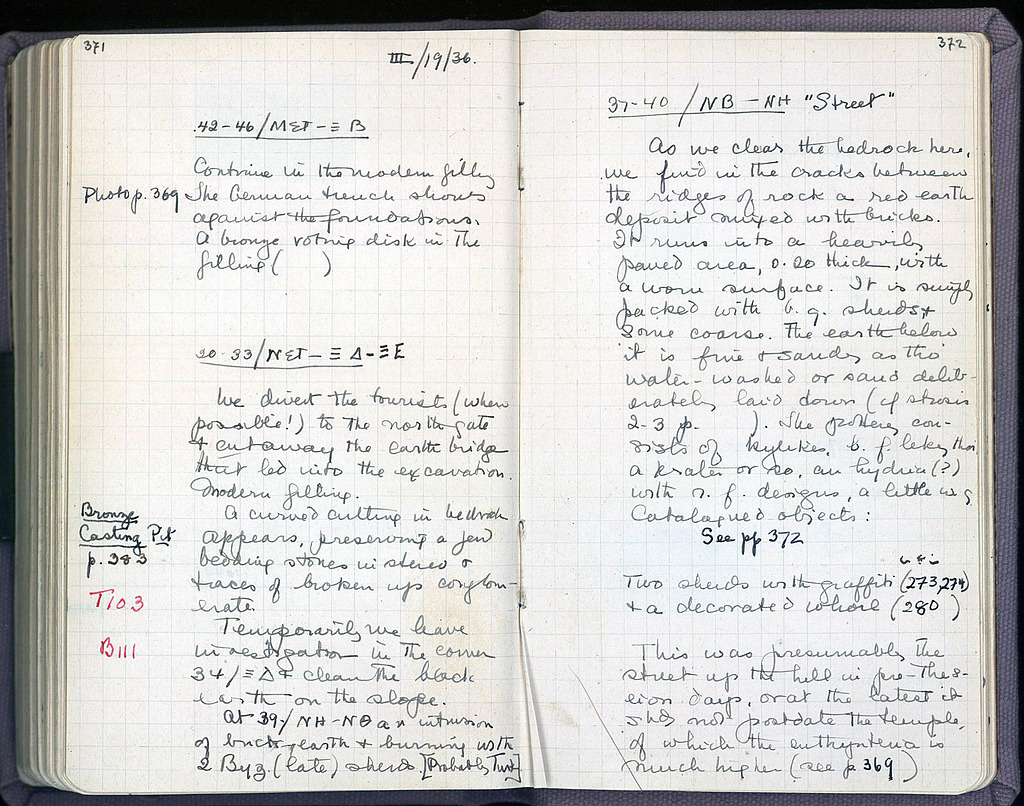 371
III/19/36.
42-46/ΜΣΤ-ΞB
Continue in the modern filling
Photo p. 369
The German trench shows
against the foundations.
A bronze voting disk in the
filling ( )
30-33/ΝΞΤ-ΞΔ-ΞE
We divert the tourists (when
possible!) to the north gate
+ cut away the earth bridge
that led into the excavation.
Modern filling.
Bronze
Casting Pit
p. 383
T103
B111
A curved cutting in bedrock
appears, preserving a few
bedding stones in stereo &
traces of broken up conglom-
erate.
Temporarily we leave
investigation in the corner
34/ΞΔ + clean the black
earth on the slope.
At 39/NH-NΘ an intrusion
of brick, earth + burning with
2 Byz. (late) sherds. [Probably Turk]
372
37-40/NB-NH "Street"
As we clear the bedrock here,
we find in the cracks between
the ridges of rock a red earth
deposit mixed with bricks.
It runs into a heavily
paved area, 0.20 thick, with
a worn surface. It is
packed with b. g. sherds +
some coarse. The earth below
it is fine + sandy as tho'
water-washed or sand delib-
erately laid down (cf strosis
2-3 p. ). The pottery con-
sists of kylikes, b. f. lekythoi
a krater or so, an hydria (?)
with r. f. designs, a little w g
Catalogued objects:
See pp 372
Two sherds with graffiti (273, 274)
+ a decorated whorl (280)
This was presumably the
street up the hill in pre-Thes-
eion days, or at the latest it
shd not postdate the temple,
of which the euthynteria is
much higher (see p. 369)